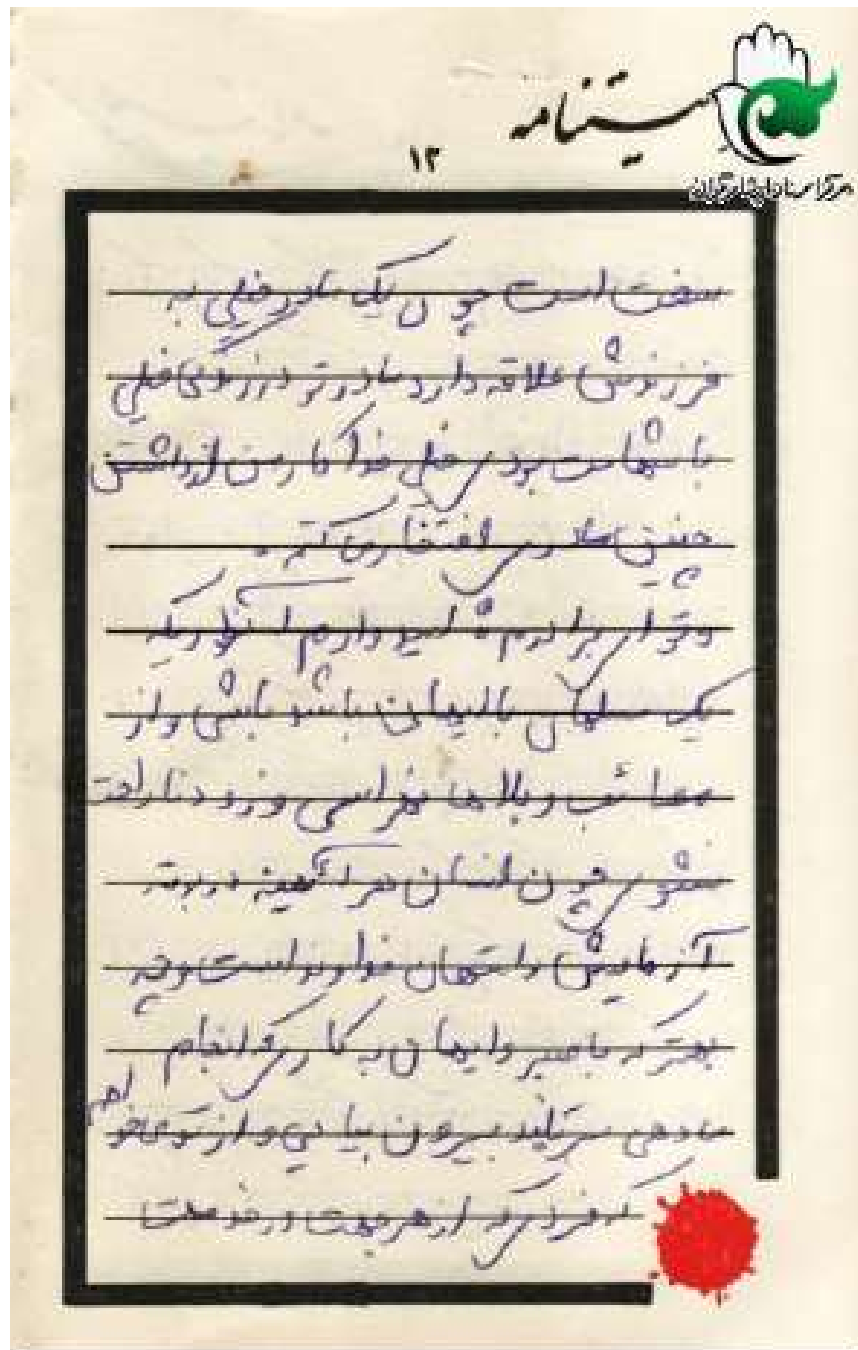 وصیتنامه
مرکز اسناد ایثارگران
۱۲
سخت است چون یک مادر خیلی به
فرزندش علاقه دارد مادر تو در زندگی خیلی
با شهامت بودی خیلی فداکار من از داشتن
چنین مادری افتخار می کنم .
و تو ای برادرم امید دارم آنطوریکه
یک مسلمان با ایمان باشد باشی و از
مصائب و بلاها نهراسی و زود ناراحت
نشوی چون انسان هر آئینه در بوته
آزمایش و امتحان خداوند است و چه
بهتر که با صبر و ایمان به کاری که انجام
میدهی سربلند بیرون بیایی و از تو می خواهم
که فردی که از هر جهت در خدمت